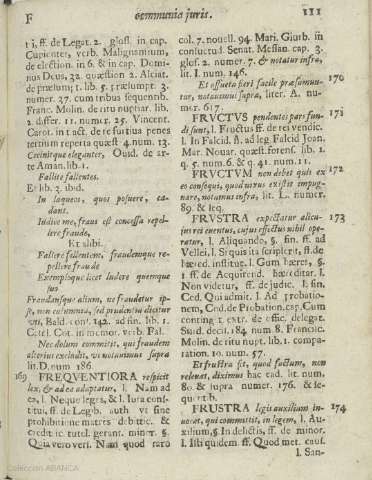 F communia juris. 111
t i, ff. de Legat. 2. gloss. in cap.
Cupientes, verb. Malignantium,
de election. in 6. & in cap. Domi-
nus Deus, 32. quæstion 2. Alciat.
de præsump. t. lib. 5. præsumpt. 3.
numer. 37. cum tribus sequentib.
Franc. Molin. de ritu nuptiar. lib.
2. differ. 11. numer. 25. Vincent.
Carot. in tract. de re
tertio reperta quæst. 4. num. 13.
eleganter, Ouid. de ar-
te Aman. lib. 1.
Fallite fallentes.
Et lib. 3. ibid.
In laqueos, quos posuere, ca-
dant.
Iudice me, fraus est concessa repel-
lere fraude,
Et alibi.
Fallere fallentem, fraudemque re-
pellere fraude
Exemploque licet ludere quemque
suo
Fraudansque alium, ne fraudetur ip-
se, non columnia, sed prudentia dicitur
vti, Bald. cons. 142. ad fin. lib. 1.
Catel. Cot. in memor. verb. Fal.
Nec dolum committit, qui fraudem
alterius excludit, vt notauimus supra
lit. D. num. 186.
169 FREQVENTIORA respicit
lex, & ad ea adaptatur, l. Nam ad
ea, l. Neque leges, & l. Iura consti-
tui, ff. de Legib. auth. vt sine
prohibitione matres debitic. &
credit. ic. tutel. gerant. minor. §.
Quia vero veri. Nam quod raro
col. 7. nouell. 94. Mari. Giurb. in
consuetud. Senat. Messan. cap. 3.
glos. 2. numer. 7. & notatur infra,
lit. I. num. 146.
Et assueta fieri facile præsumun- 170
tur, notauimus supra, liter. A. nu-
mer. 617.
FRVCTVS pendentes pars fun- 171
di sunt, l. Fructus ff. de rei vendic.
l. In Falcid. ff. ad leg. Falcid. Joan.
Mar. Nouar. quæst. forens. lib. 1.
q. 5. num. 6. & q. 41. num. 11.
FRVCTVM non debet quis ex 172
eo consequi, quod nixus existit impug-
nare, notauimus infra, lit. L. numer.
89. & seq.
FRVSTRA expectatur alicu- 173
jus rei euentus, cujus effectus nihil ope-
ratur, l. Aliquando, §. fin. ff. ad
Vellei, l. Si quis ita scripserit, ff. de
hæred. institut. l. Gum hæres, §.
1 ff. de Acquirend. hæreditat. l.
Non videtur, ff. de judic. l. fin.
Ced. Qui admit. l. Ad probatio-
nem, Cod. de Probation. cap. Cum
contingat, extr. de offic. delegat.
Surd. decis. 184. num 8. Francisc.
Molin. de ritu nupt. lib. 1. compa-
ration. 10. num. 57.
Et frustra fit, quod factum, non
releuat, diximus hac ead. lit. num.
80. & supra numer. 176. & se-
quentib.
FRUSTRA legis auxilium in- 174
uocat, qui committit, in legem, l. Au-
xilium, §. In delictis, ff. de minor.
l. Isti quidem ff. Quod met. caus.
l. San-
Colección ABANCA